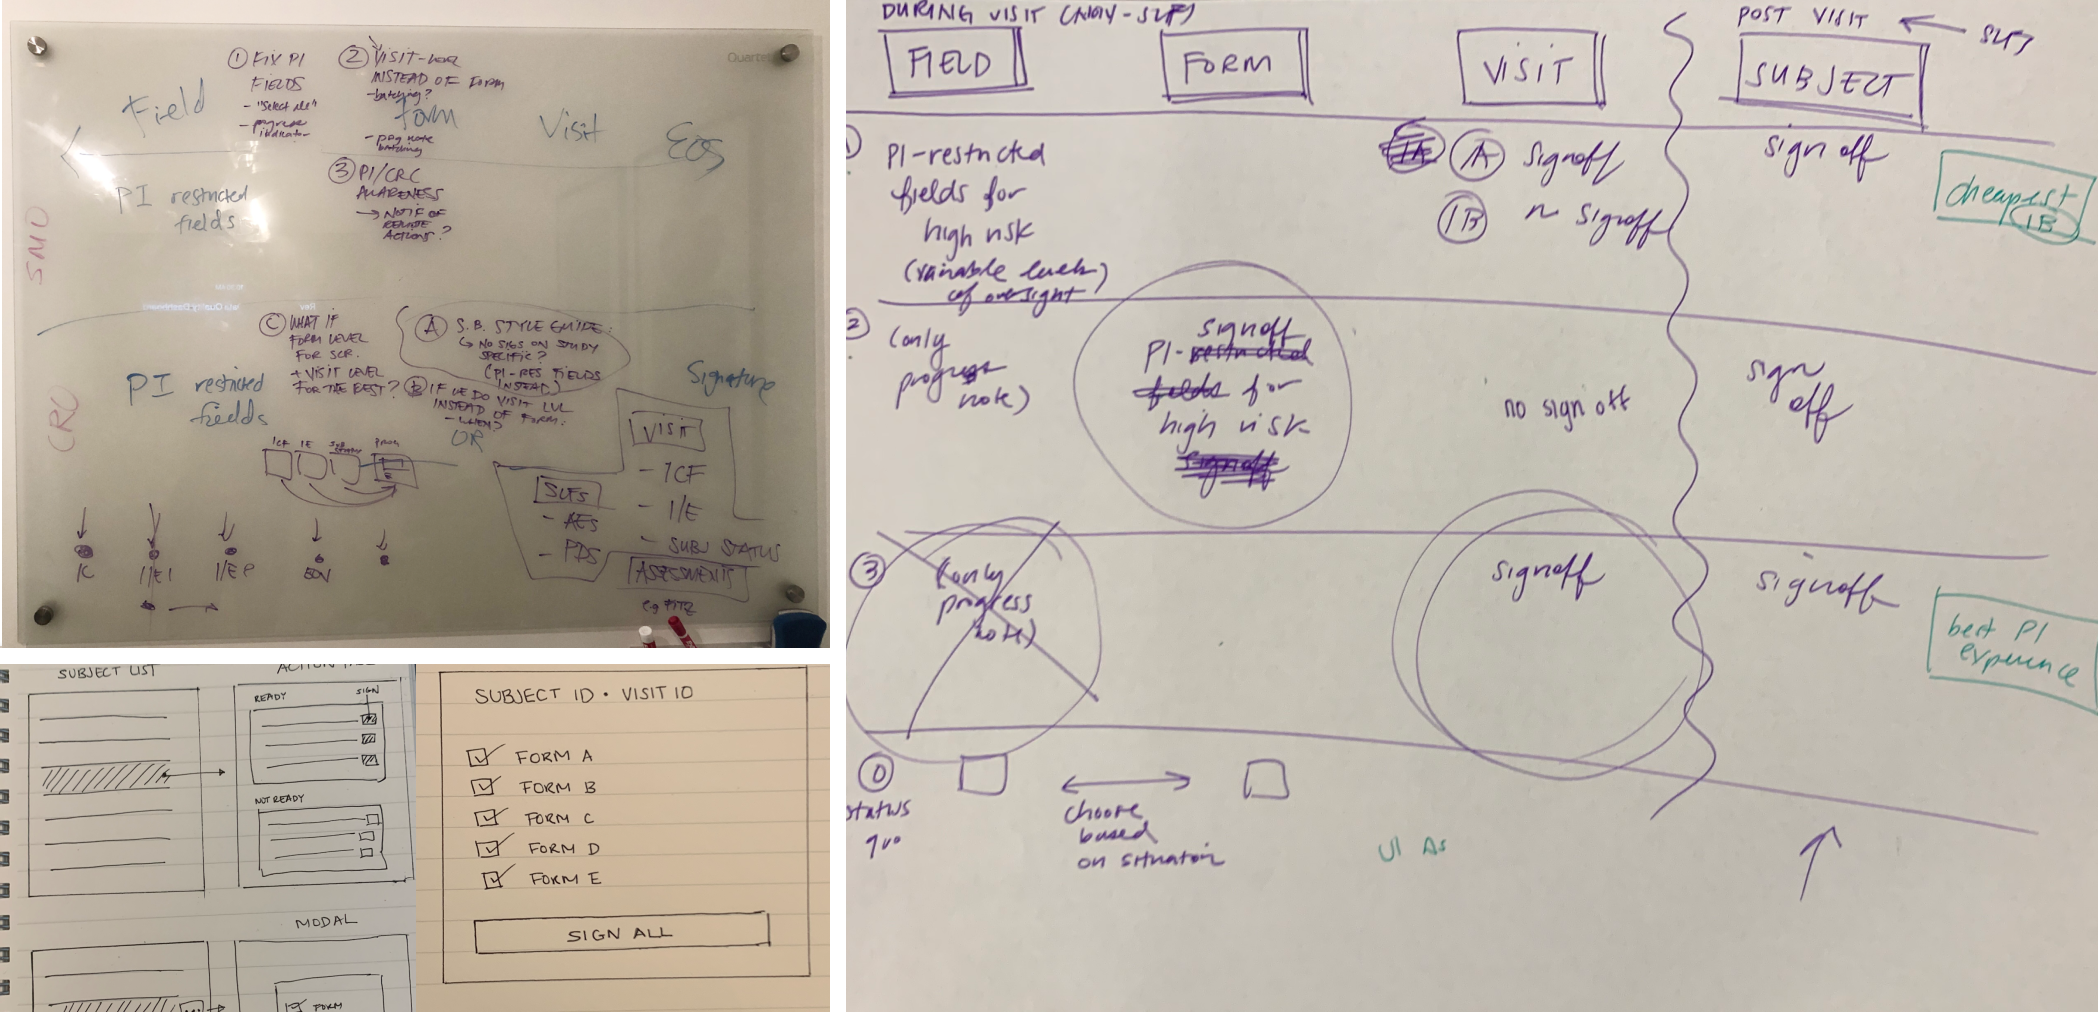 Quartet
① FIX PI
FIELDS
- "Select all"
- progress
indicator
② VISIT-LVL
INSTEAD OF FORM
- batching?
- prog note
batching
Field
form
Visit
EOS
③ PI/CRC
AWARENESS
→ NOTIF OF
REMOTE
ACTIONS?
SMO
PI restricted
fields
Ⓒ WHAT IF
FORM LEVEL
FOR SCR.
+ VISIT LEVEL
FOR THE REST?
Ⓐ S.B. STYLE GUIDE:
↳ NO SIGS ON STUDY
SPECIFIC?
(PI-RES FIELDS
INSTEAD)
Ⓑ IF WE DO VISIT LVL
INSTEAD OF FORM:
- WHEN?
OR
CRO
PI restricted
fields
Signature
ICF IE PROG
VISIT
- ICF
- I/E
- SUBJ STATUS
SLFS
- AEs
- PDS
ASSESSMENTS
IC
I/E 1
I/E P
EOV
SUBJECT LIST
READY
SIGN
NOT READY
MODAL
FORM
SUBJECT ID • VISIT ID
FORM A
FORM B
FORM C
FORM D
FORM E
SIGN ALL
DURING VISIT (NON-SLF)
POST VISIT ← SLFS
FIELD
FORM
VISIT
SUBJECT
① PI-restricted
fields for
high risk
(variable levels
of oversight)
1A Ⓐ signoff
1B no signoff
sign off
cheapest
1B
② (only
progress
note)
signoff
PI-restricted
fields for
high risk
signoff
no sign off
sign
off
③ (only
progress
note)
signoff
signoff
best PI
experience
⓪
status
quo
choose
based
on situation
UI As